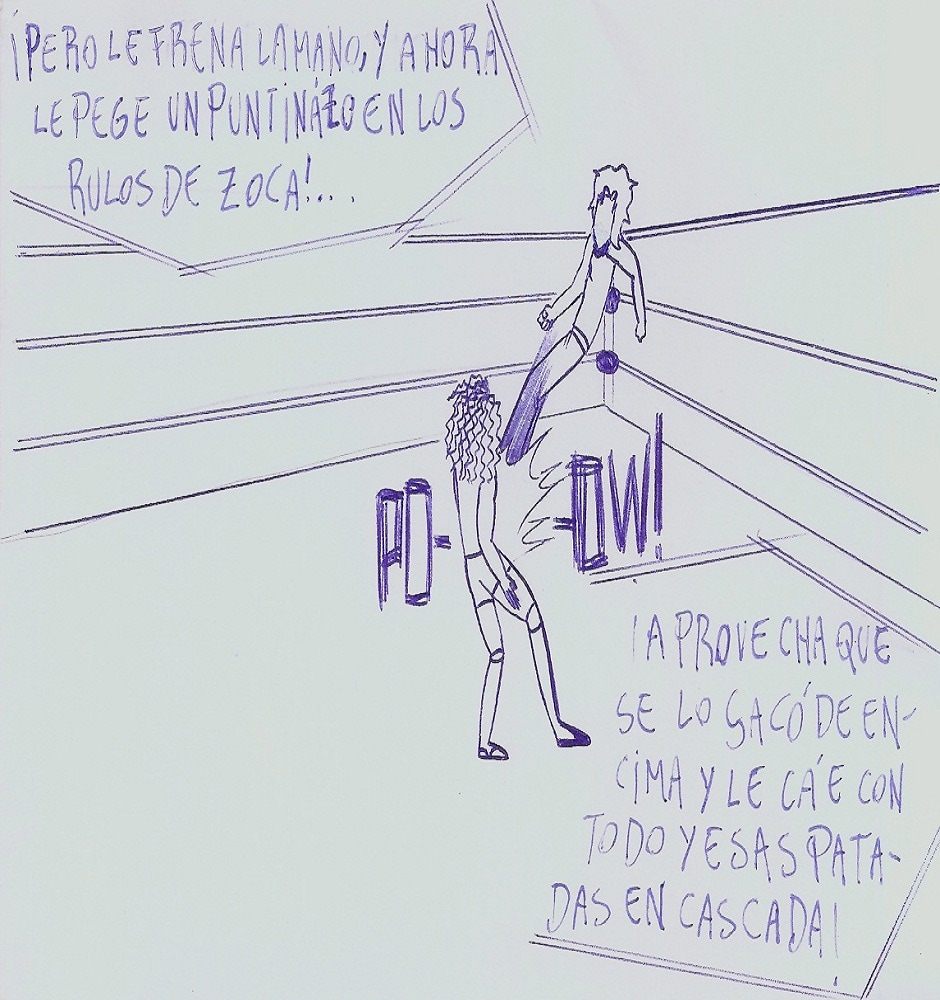 ¡PERO LE FRENA LA MANO, Y AHORA
LE PEGE UN PUNTINÁZO EN LOS
RULOS DE ZOCA!....
PO-
-OW!
¡APROVECHA QUE
SE LO SACÓ DE EN-
CIMA Y LE CÁE CON
TODO Y ESAS PATA-
DAS EN CASCADA!